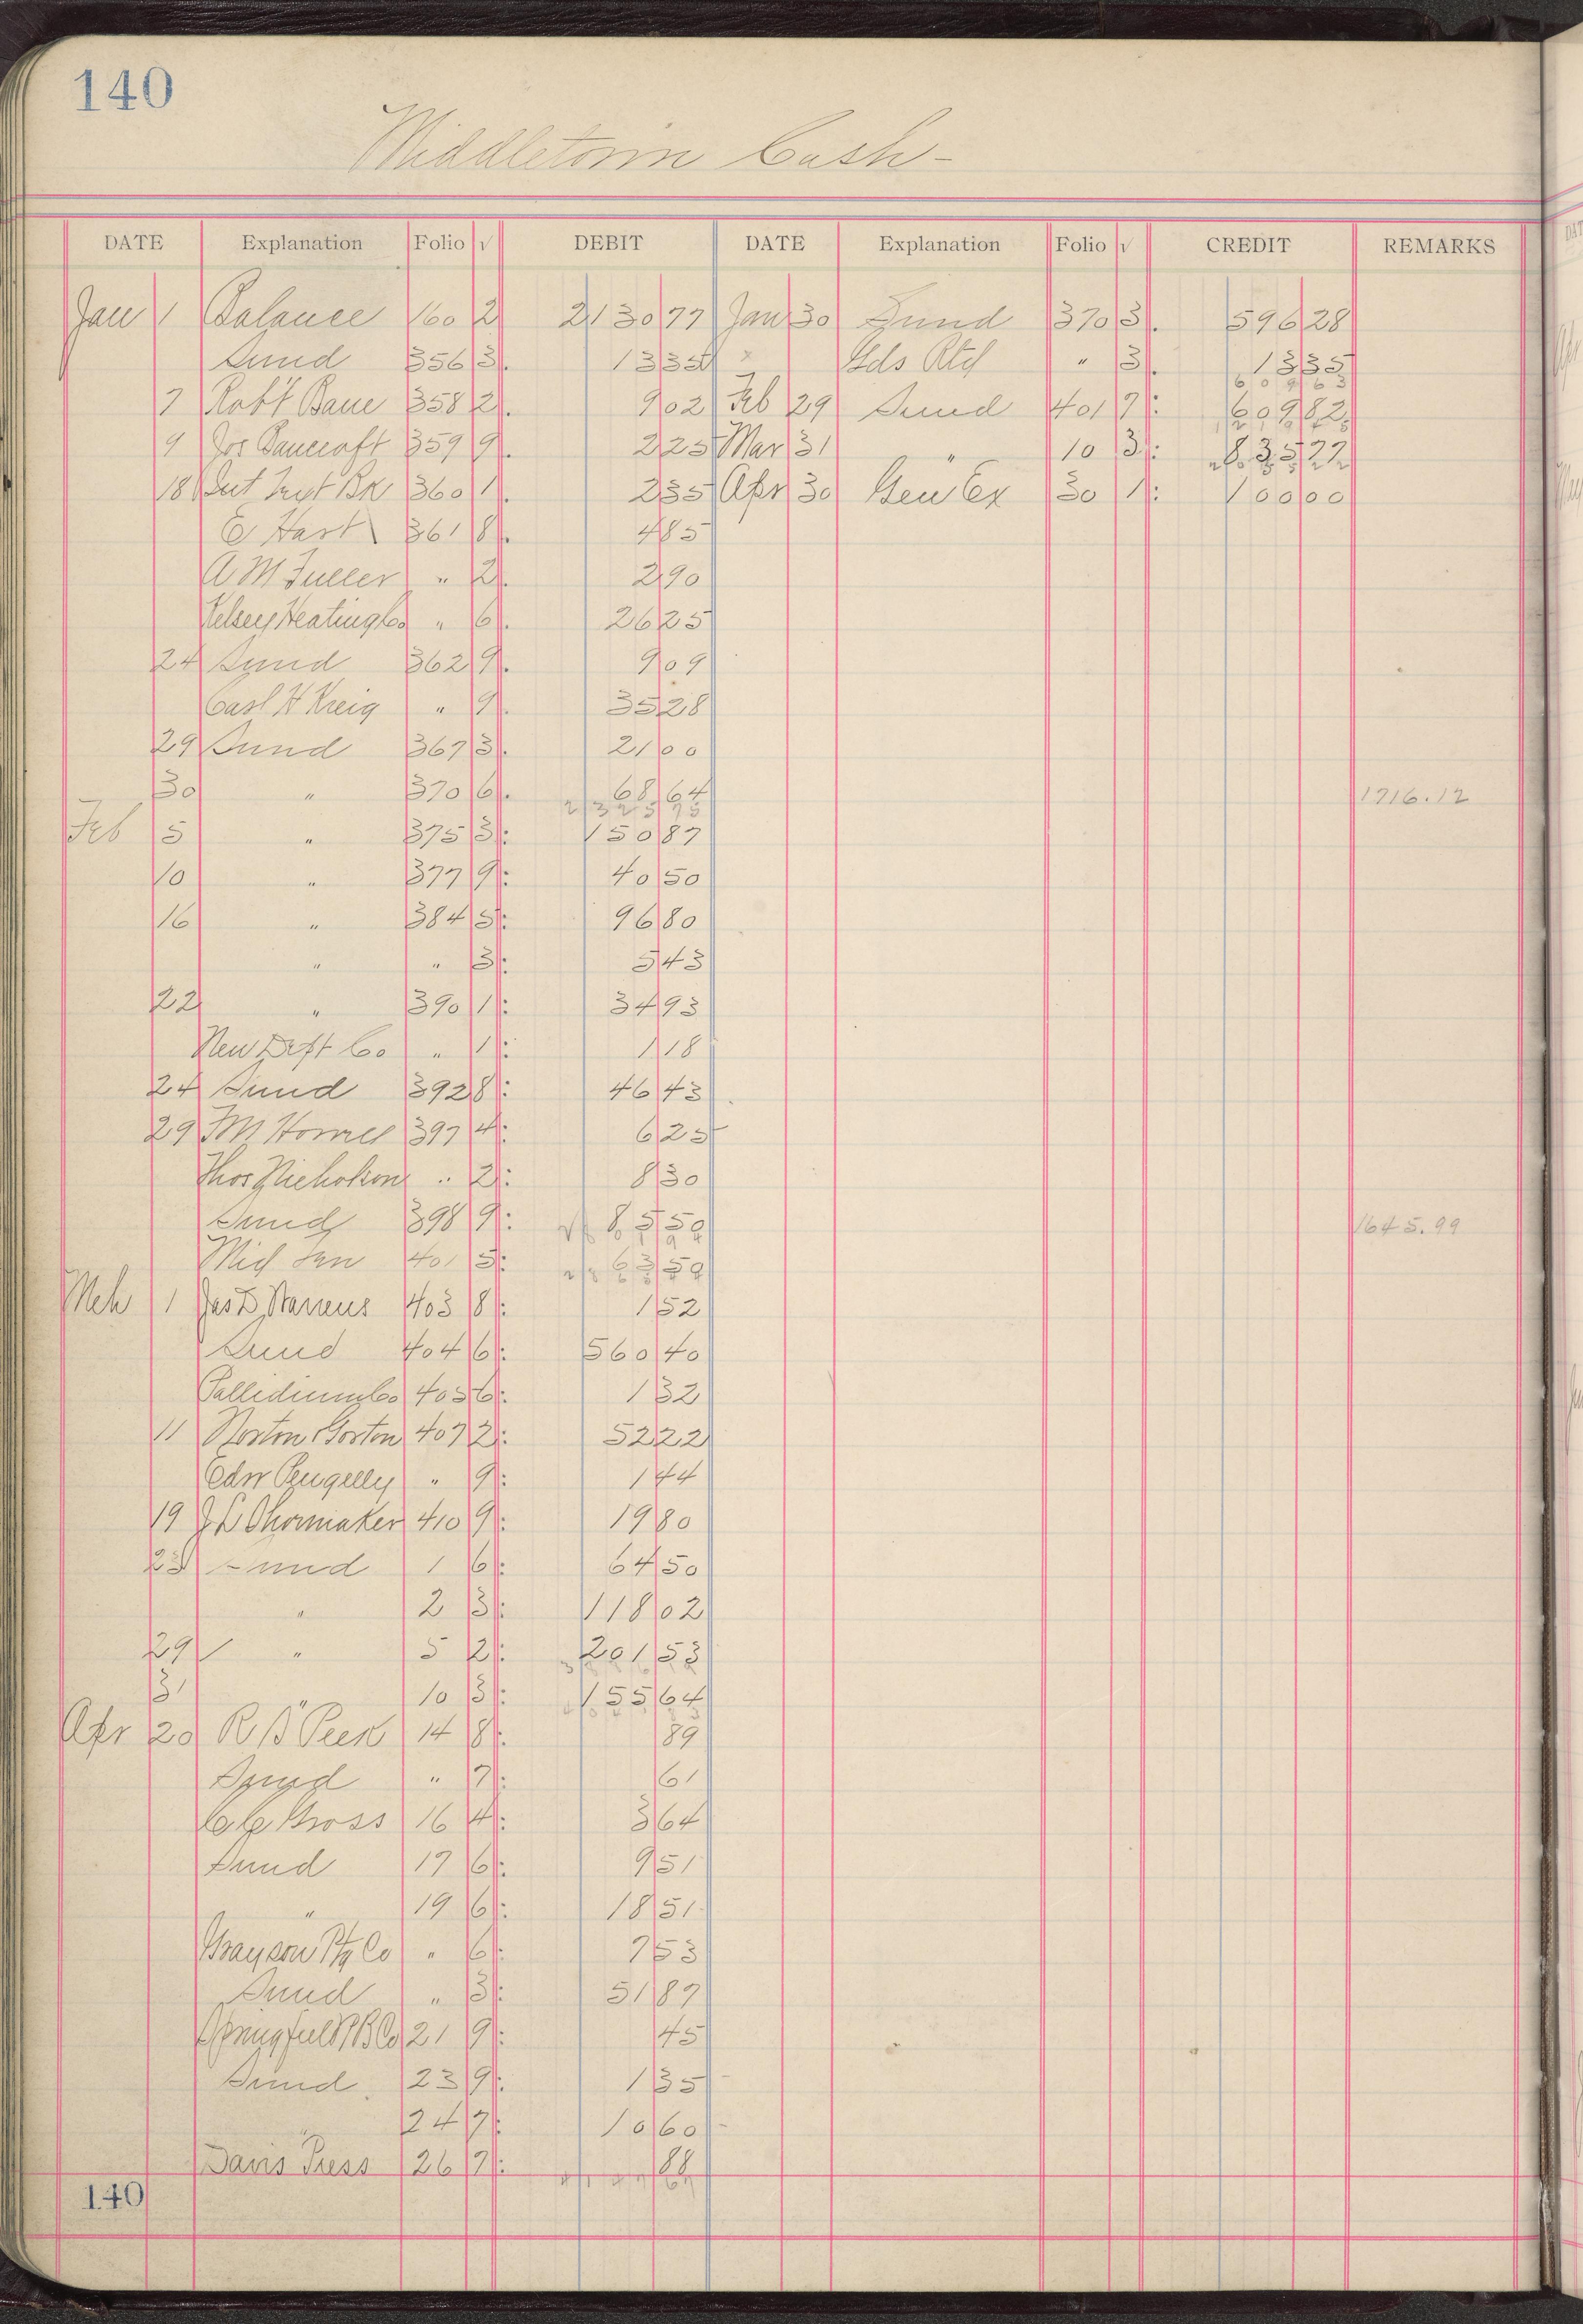 140
Middletown Cash -
DATE Explanation Folio √ DEBIT DATE Explanation Folio √ CREDIT REMARKS
Jan 1 Balance 160 2 2130 77 Jan 30 Sund 370 3 596 28
Sund 356 3 13 35 " Gds Rtd " 3 13 35
609 63
7 Robt Bane 358 2 9 02 Feb 29 Sund 401 7 609 82
9 Jos Bancroft 359 9 2 25 Mar 31 " 10 3 835 77
18 360 1 2 35 Apr 30 Gen Ex 30 1 100 00
E Hart 361 8 4 85
A M Fuller " 2 2 90
Kelsey Heating Co " 6 26 25
24 Sund 362 9 9 09
Carl H Kreig " 9 35 28
29 Sund 367 3 21 00
30 " 370 6 68 64 1716.12
2325 75
Feb 5 " 375 3 150 87
10 " 377 9 40 50
16 " 384 5 96 80
" " 3 5 43
22 " 390 1 34 93
New Dept Co " 1 1 18
24 Sund 392 8 46 43
29 F M Homes 397 4 6 25
Thos Nicholson " 2 8 30
Sund 398 9 85 50 1645.99
Mid 401 5 63 59
Mch 1 Jas D 403 8 1 52
Sund 404 6 560 40
Palledium Co 405 6 1 32
11 Norton Gorton 407 2 52 22
Edw Pengelly " 9 1 44
19 J L Shoemaker 410 9 19 80
23 Sund 1 6 64 50
" 2 3 118 02
29 " 5 2 201 53
31 " 10 3 155 64
Apr 20 R B Peek 14 8 89
Sund " 7 61
C C Gross 16 4 3 64
Sund 17 6 9 51
" 19 6 18 51
Grayson Ptg Co " 6 7 53
Sund " 3 51 87
Springfield P B Co 21 9 45
Sund 23 9 1 35
" 24 7 10 60
Davis Press 26 7 88
140